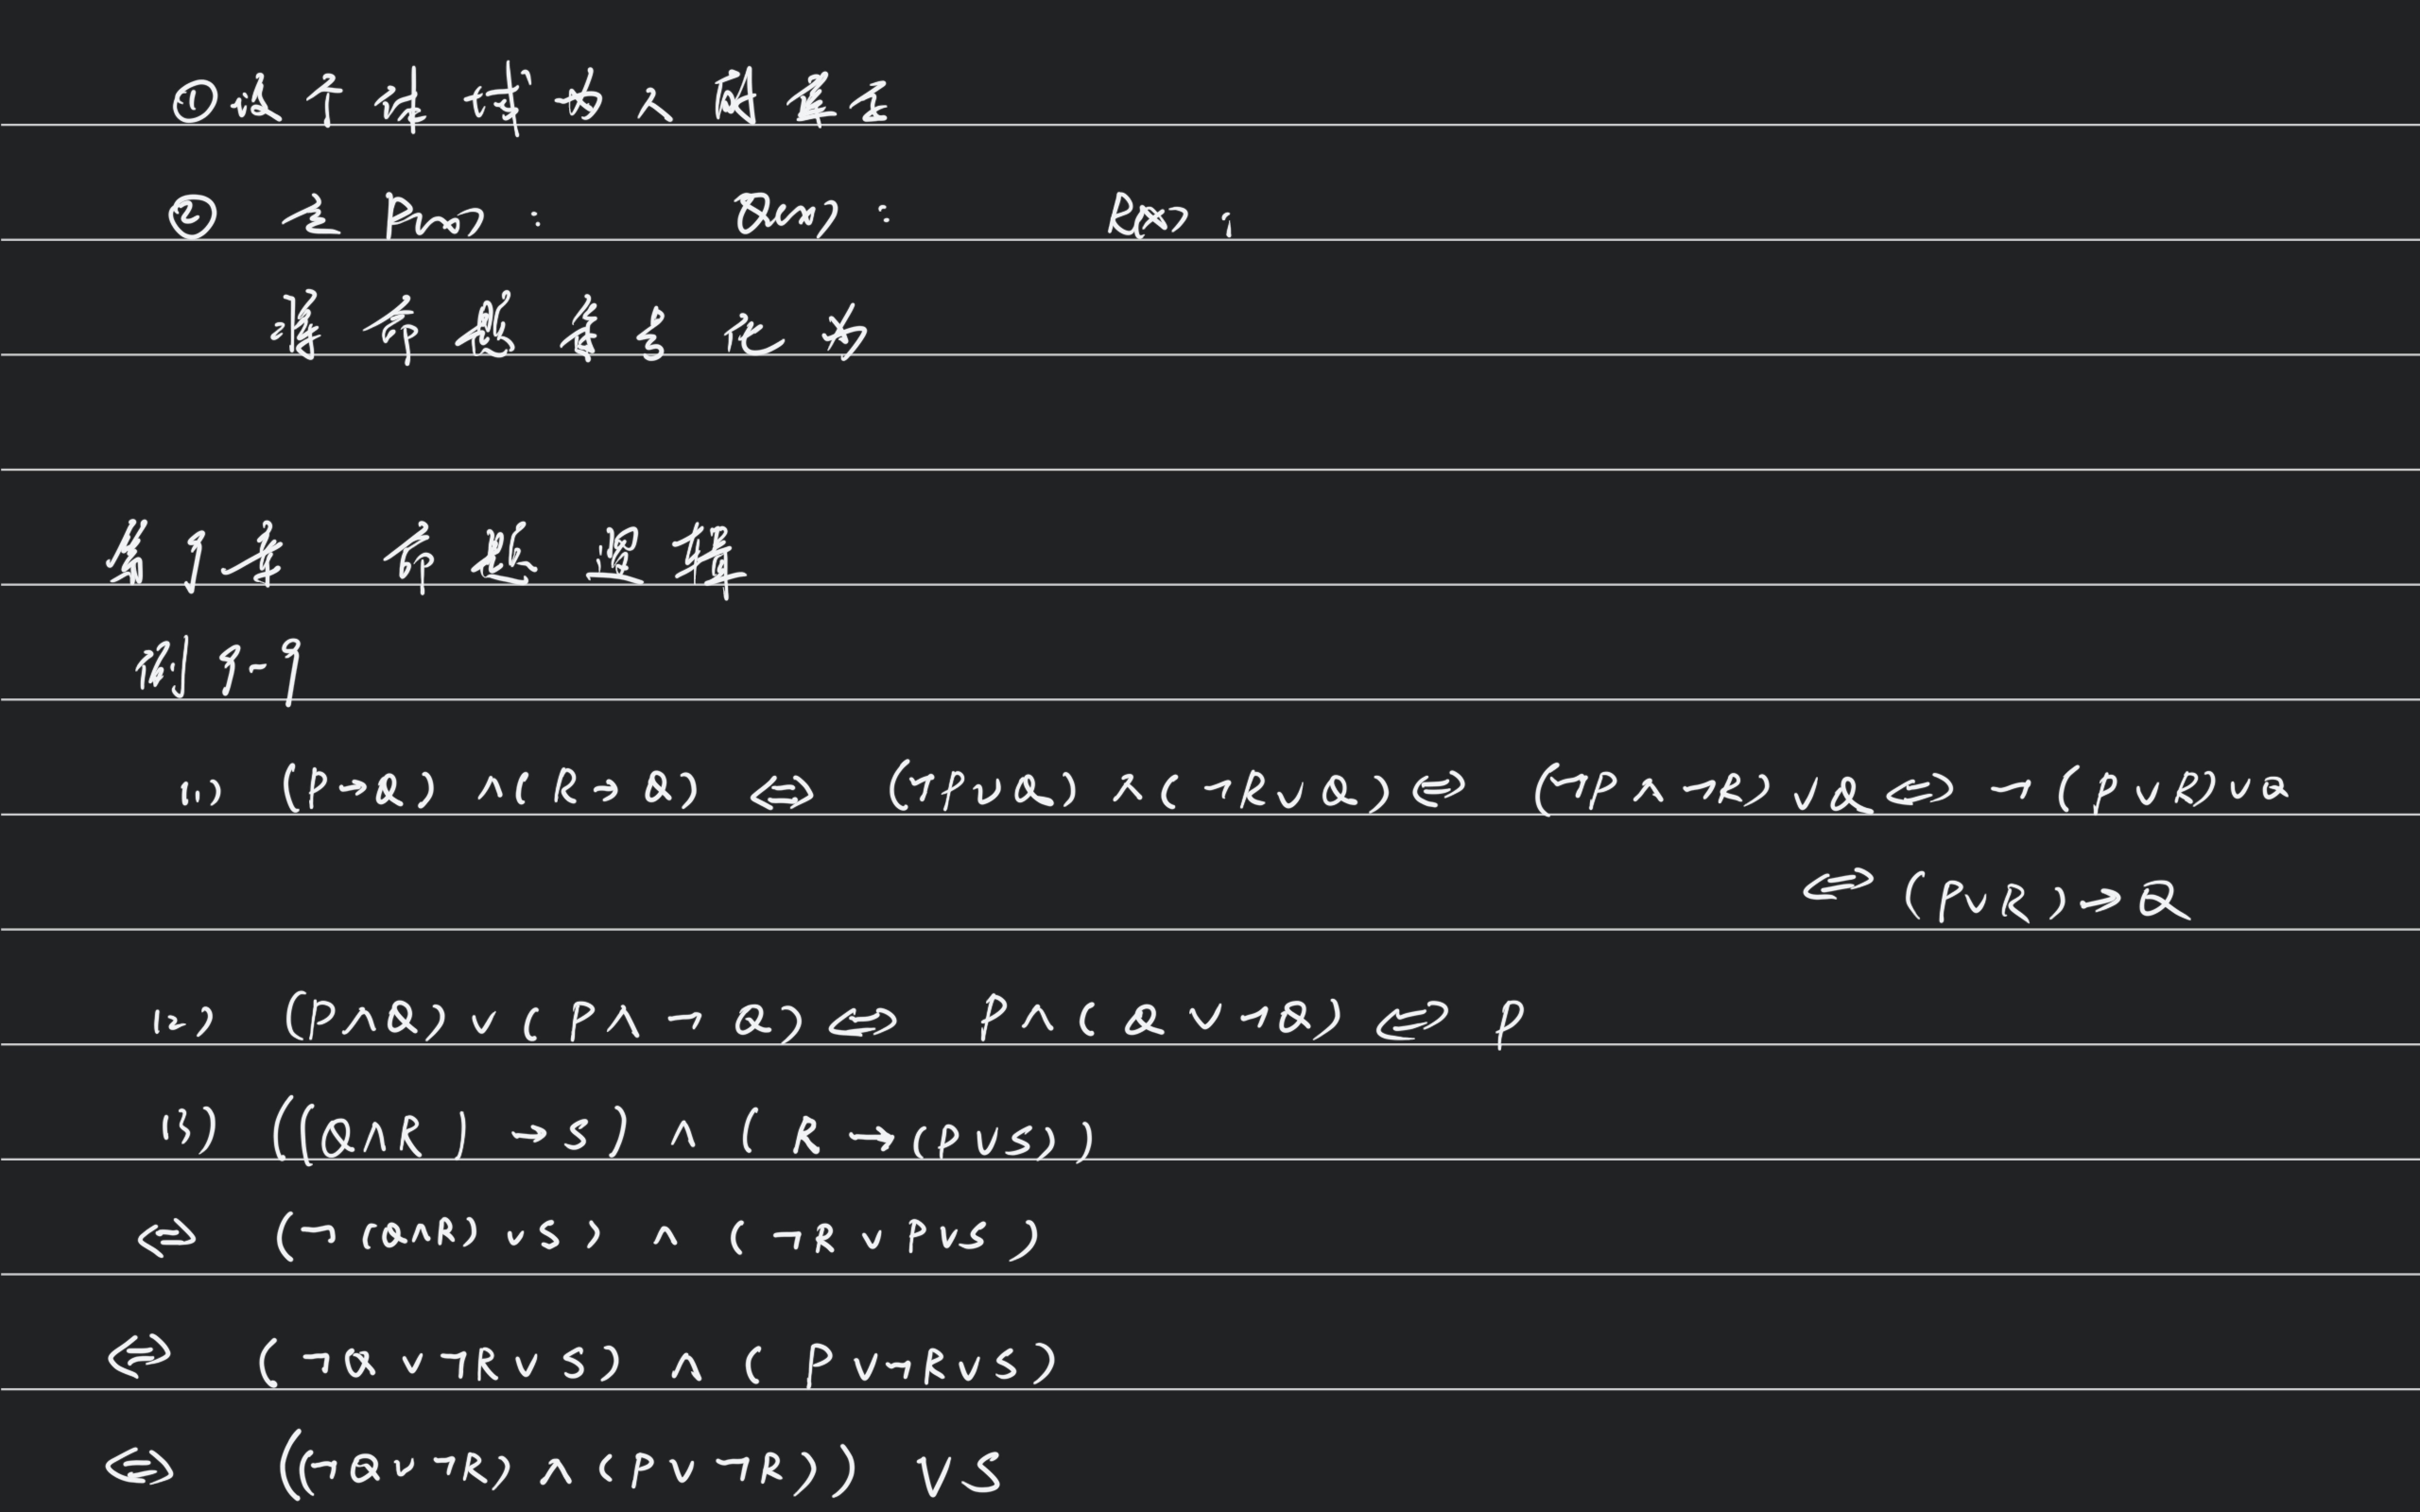 ①设个体域为人的集合
② 令 P(x): Q(x): R(x):
将命题符号化为
第9章 命题逻辑
例9-9
(1) (P→Q) ∧ (R→Q) ⇔ (¬P∨Q) ∧ (¬R∨Q) ⇔ (¬P∧¬R)∨Q ⇔ ¬(P∨R)∨Q
⇔ (P∨R)→Q
(2) (P∧Q)∨(P∧¬Q) ⇔ P∧(Q∨¬Q) ⇔ P
(3) ((Q∧R)→S) ∧ (R→(P∨S))
⇔ (¬(Q∧R)∨S) ∧ (¬R∨P∨S)
⇔ (¬Q∨¬R∨S) ∧ (P∨¬R∨S)
⇔ ((¬Q∨¬R)∧(P∨¬R)) ∨S